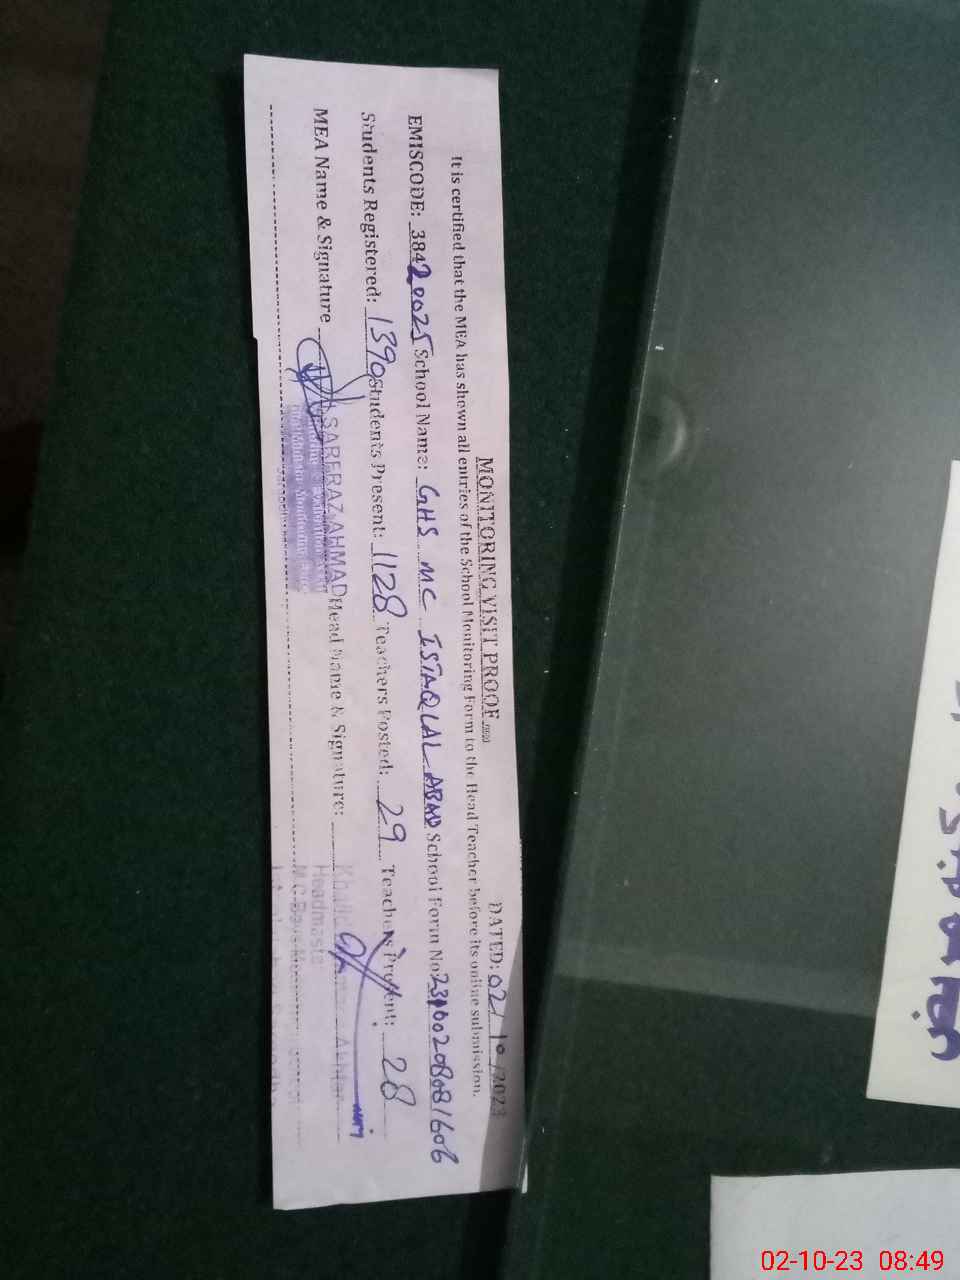 MONITORING VISIT PROOF
DATED: 02/10/2023
It is certified that the MEA has shown all entries of the School Monitoring Form to the Head Teacher before its online submission.
EMISCODE: 38420025 School Name: GHS MC ISTAQLAL ABAD School Form No
Students Registered: 1390 Students Present: 1128 Teachers Posted: 29 Teachers Present: 28
MEA Name & Signature Head Name & Signature:
SARFRAZ AHMAD
Khalid Akhtar
Headmaste
02-10-23 08:49